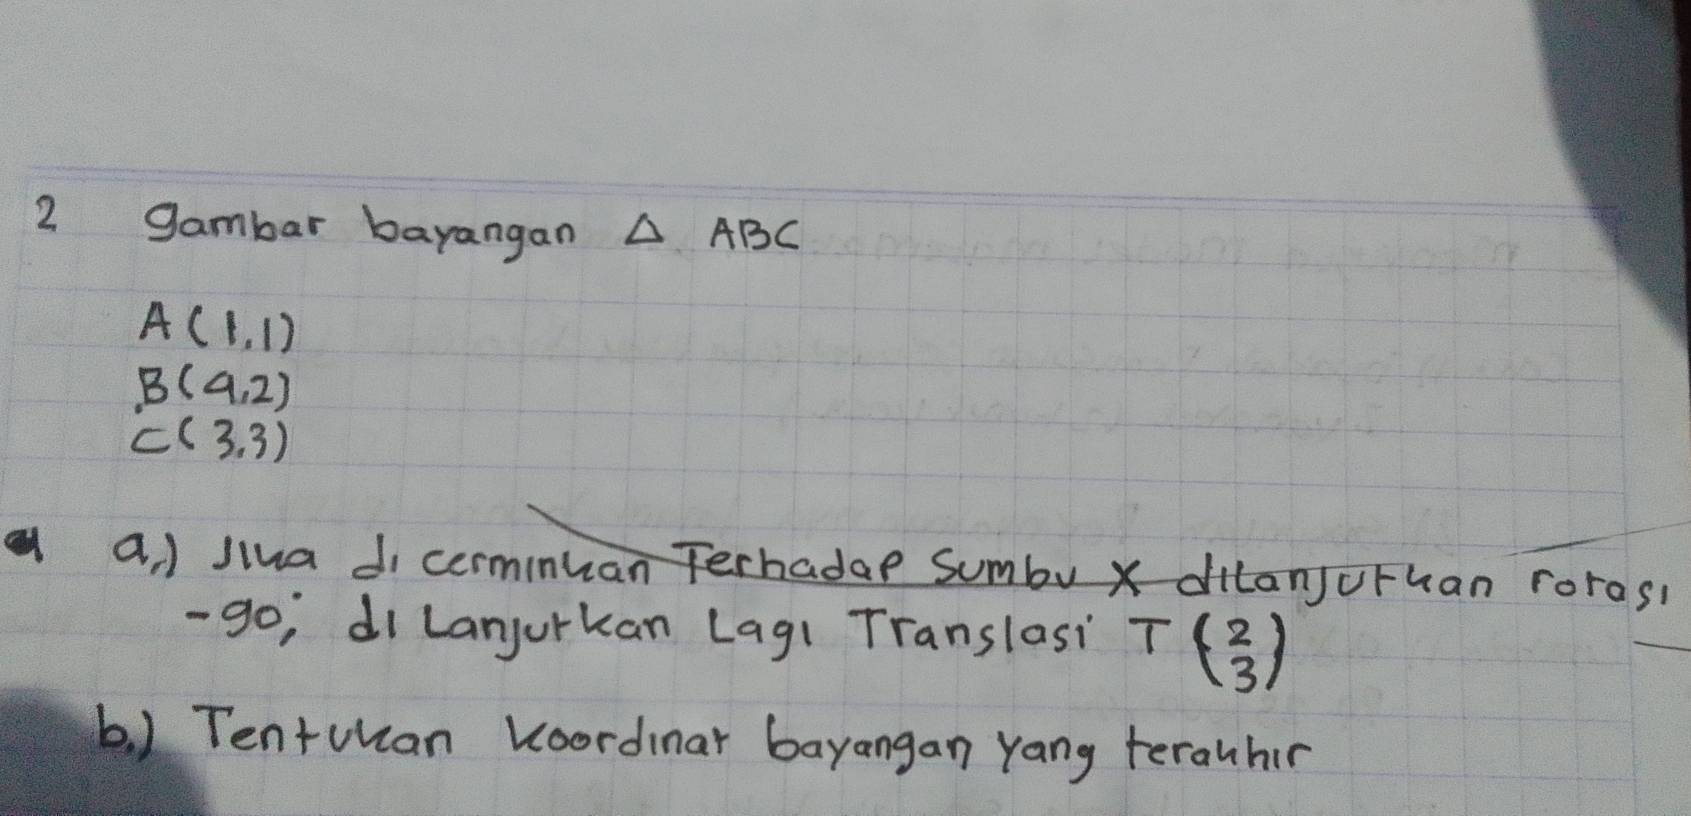 2 gambar bayangan △ ABC
A(1,1)
B(4,2)
C(3,3)
a.) Jika di cerminkan Terhadap Sumbu X dilanjutkan rotasi
-90°, di Lanjutkan Lagi Translasi T (2 3)
b.) Tentukan koordinat bayangan yang terakhir